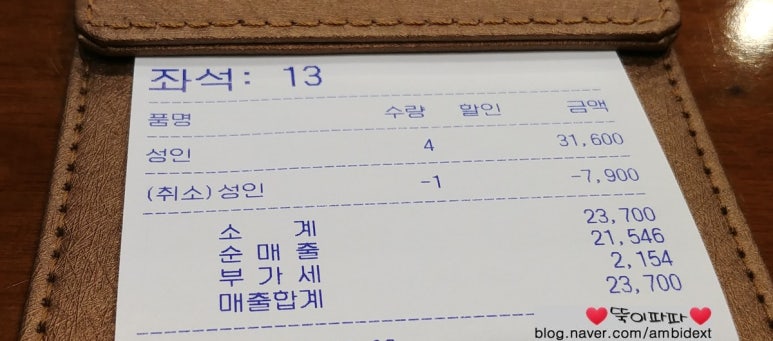 좌석: 13
품명 수량 할인 금액
성인 4 31,600
(취소)성인 -1 -7,900
소 계 23,700
순 매 출 21,546
부 가 세 2,154
매출합계 23,700
♥뚝이파파♥
blog.naver.com/ambidext